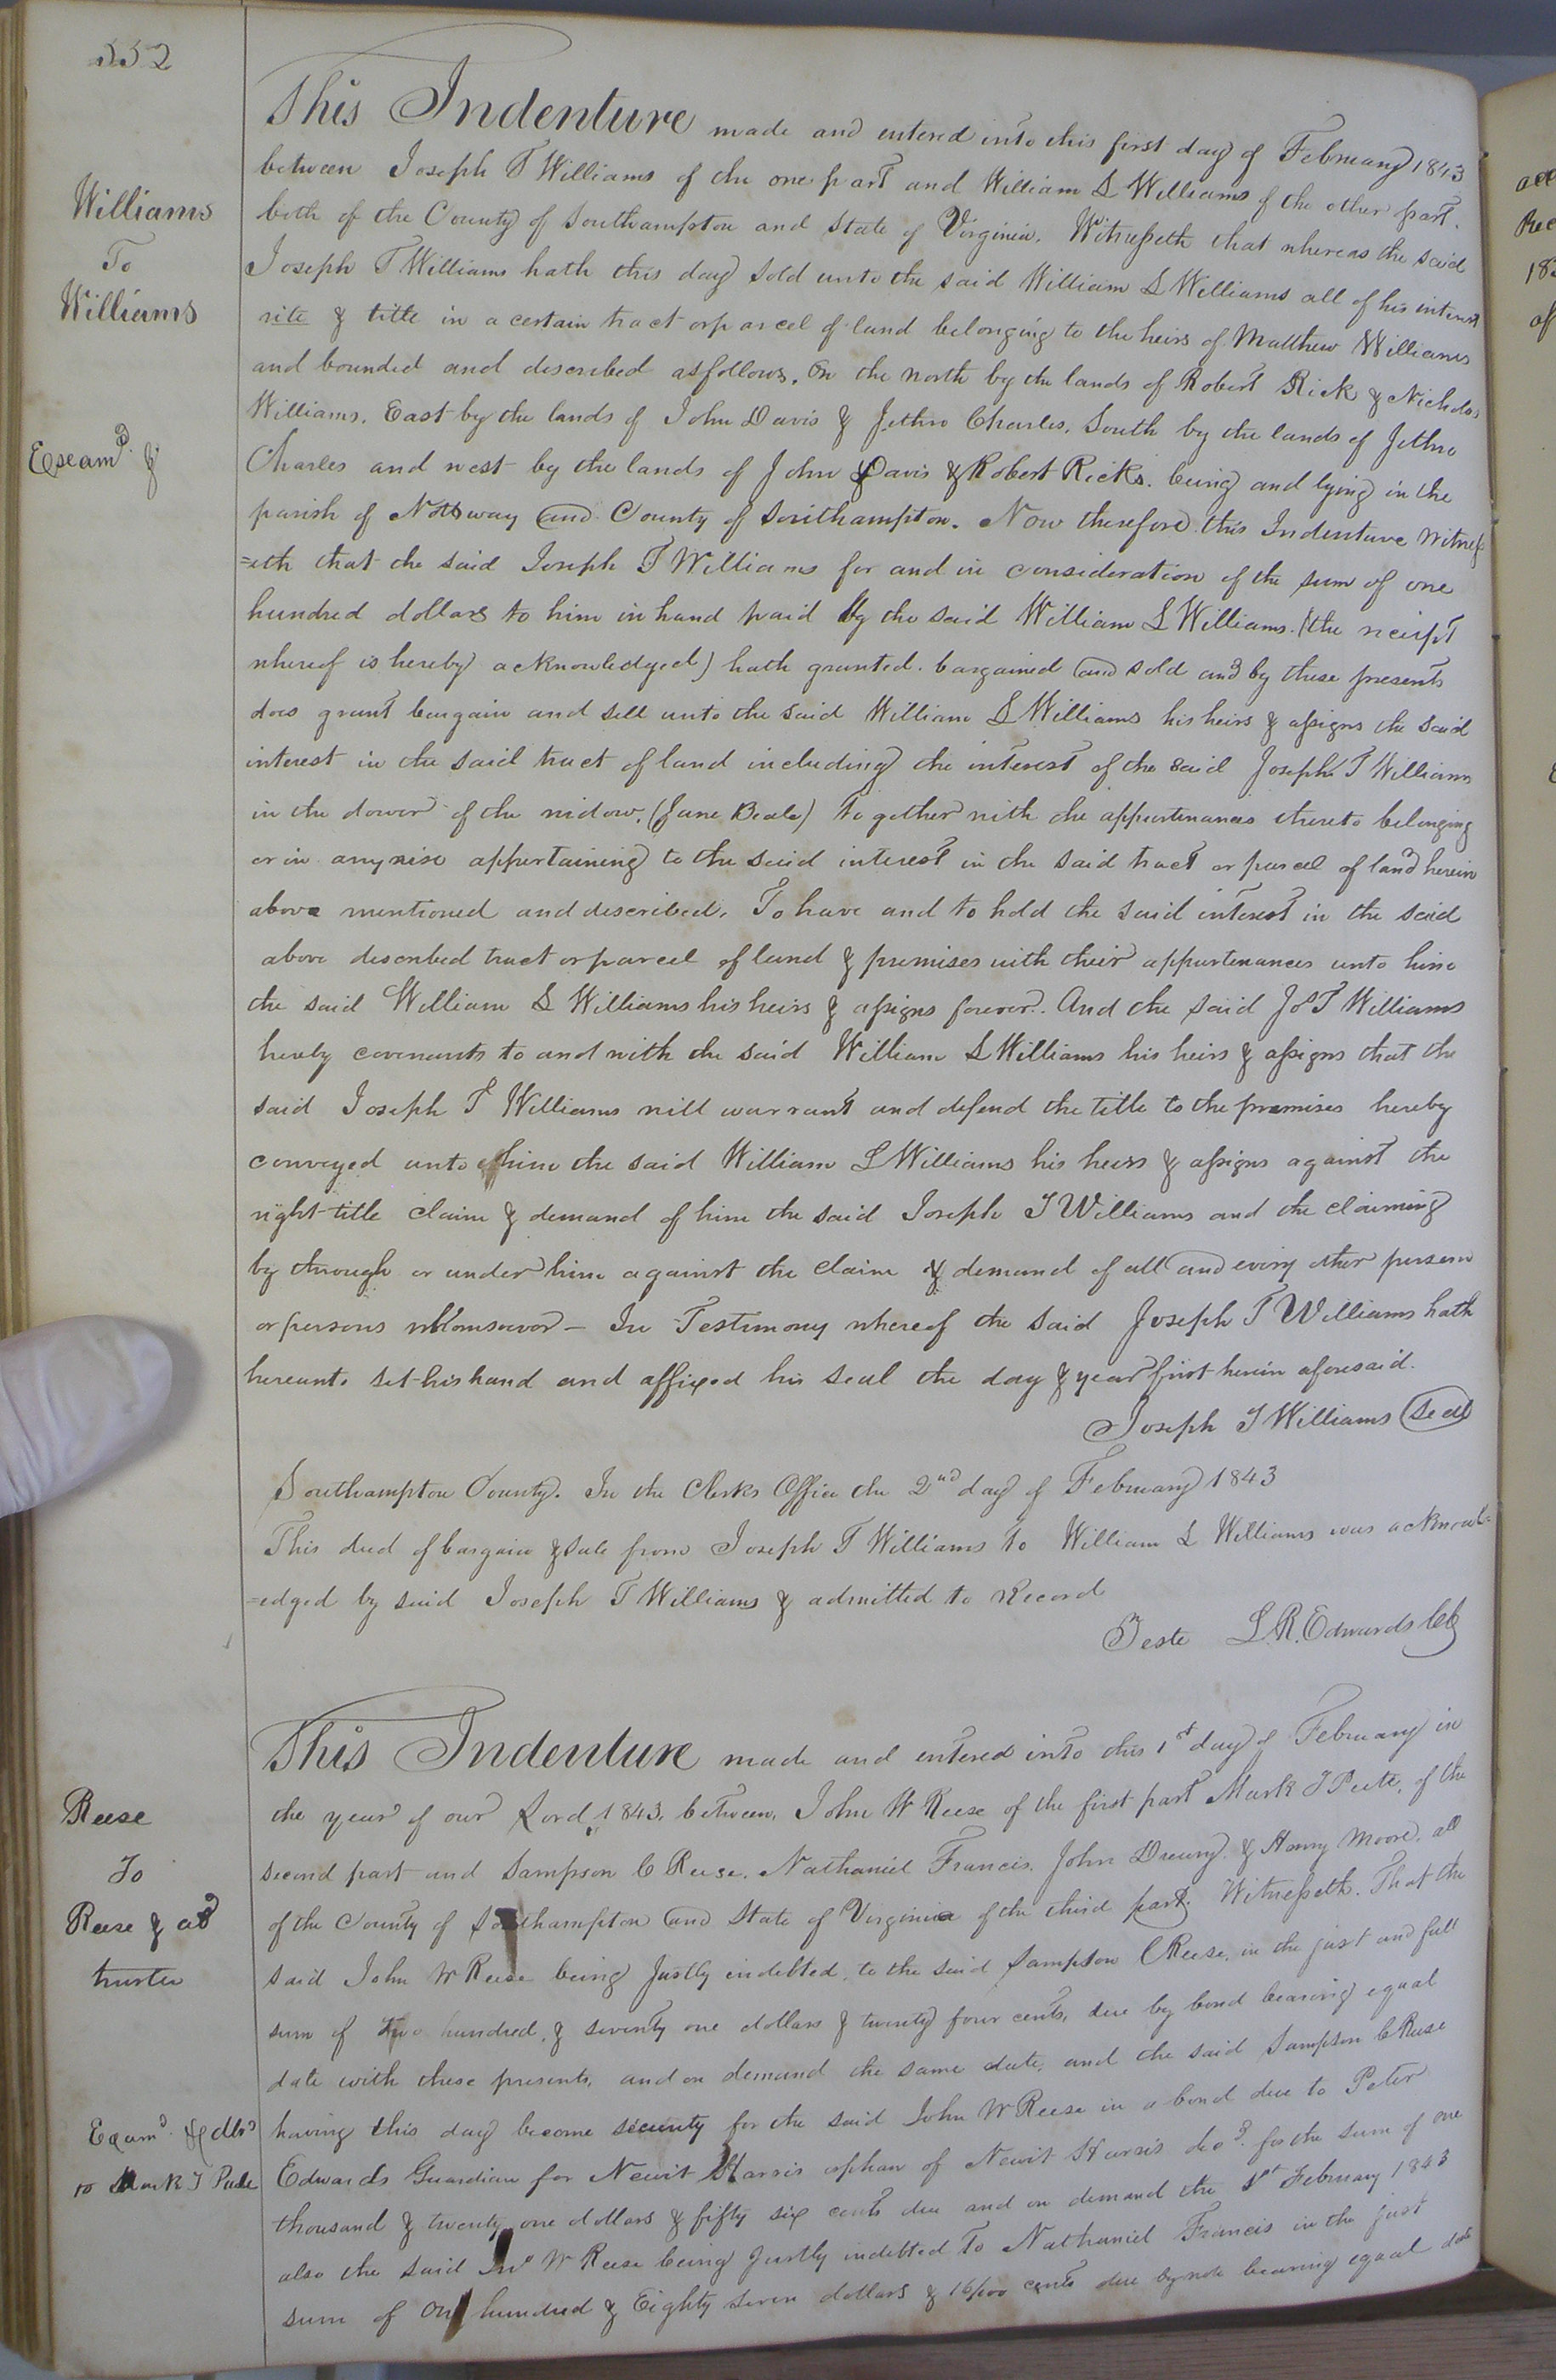 332
This Indenture made and entered into this first day of February 1843
between Joseph T Williams of the one part and William L Williams of the other part.
both of the County of Southampton and State of Virginia. Witnesseth that whereas the said
Joseph T Williams hath this day sold unto the said William L Williams all of his interest
rite & title in a certain tract or parcel of land belonging to the heirs of Matthew Williams
and bounded and described as follows. On the north by the lands of Robert Rick & Nicholas
Williams. East by the lands of John Davis & Jethro Charles. South by the lands of Jethro
Charles and west by the lands of John Davis & Robert Ricks. being and lying in the
parish of Nottoway and County of Southampton. Now therefore this Indenture witness
=eth that the said Joseph T Williams for and in consideration of the sum of one
hundred dollars to him in hand paid by the said William L Williams. (the receipt
whereof is hereby acknowledged) hath granted. bargained and sold and by these presents
does grant bargain and sell unto the said William L Williams his heirs & assigns the said
interest in the said tract of land including the interest of the said Joseph T Williams
in the dower of the widow. (Jane Beale) together with the appurtenances thereto belonging
or in anywise appertaining to the said interest in the said tract or parcel of land herein
above mentioned and described. To have and to hold the said interest in the said
above described tract or parcel of land & premises with their appurtenances unto him
the said William L Williams his heirs & assigns forever. And the said Jos T Williams
hereby covenants to and with the said William L Williams his heirs & assigns that the
said Joseph T Williams will warrant and defend the title to the premises hereby
conveyed unto him the said William L Williams his heirs & assigns against the
right title claim & demand of him the said Joseph T Williams and the claiming
by through or under him against the claim & demand of all and every other person
or persons whomsoever – In Testimony whereof the said Joseph T Williams hath
hereunto set his hand and affixed his seal the day & year first herein aforesaid.
Joseph T Williams Seal
Southampton County. In the Clerks Office the 2nd day of February 1843
This deed of bargain & sale from Joseph T Williams to William L Williams was acknowl=
=edged by said Joseph T Williams & admitted to Record
Teste L. R. Edwards Clk
Williams
To
Williams
Examd. &
This Indenture made and entered into this 1st day of February in
the year of our Lord 1843. between. John W Reese of the first part Mark T Peete. of the
second part and Sampson C Reese. Nathaniel Francis. John Drewry. & Henry Moore. all
of the County of Southampton and State of Virginia of the third part. Witnesseth. That the
said John W Reese being Justly indebted, to the said Sampson C Reese, in the just and full
sum of two hundred, & seventy one dollars & twenty four cents, due by bond bearing equal
date with these presents, and on demand the same date, and the said Sampson C Reese
having this day become security for the said John W Reese in a bond due to Peter
Edwards Guardian for Newit Harris orphan of Newit Harris decd. for the sum of one
thousand & twenty one dollars & fifty six cents due and on demand the 1st February 1843
also the said Jno W Reese being Justly indebted To Nathaniel Francis in the just
sum of one hundred & Eighty seven dollars & 16/100 cents due by note bearing equal date
Reese
To
Reese & als
trustee
Examd. & dld
to Mark T Peete